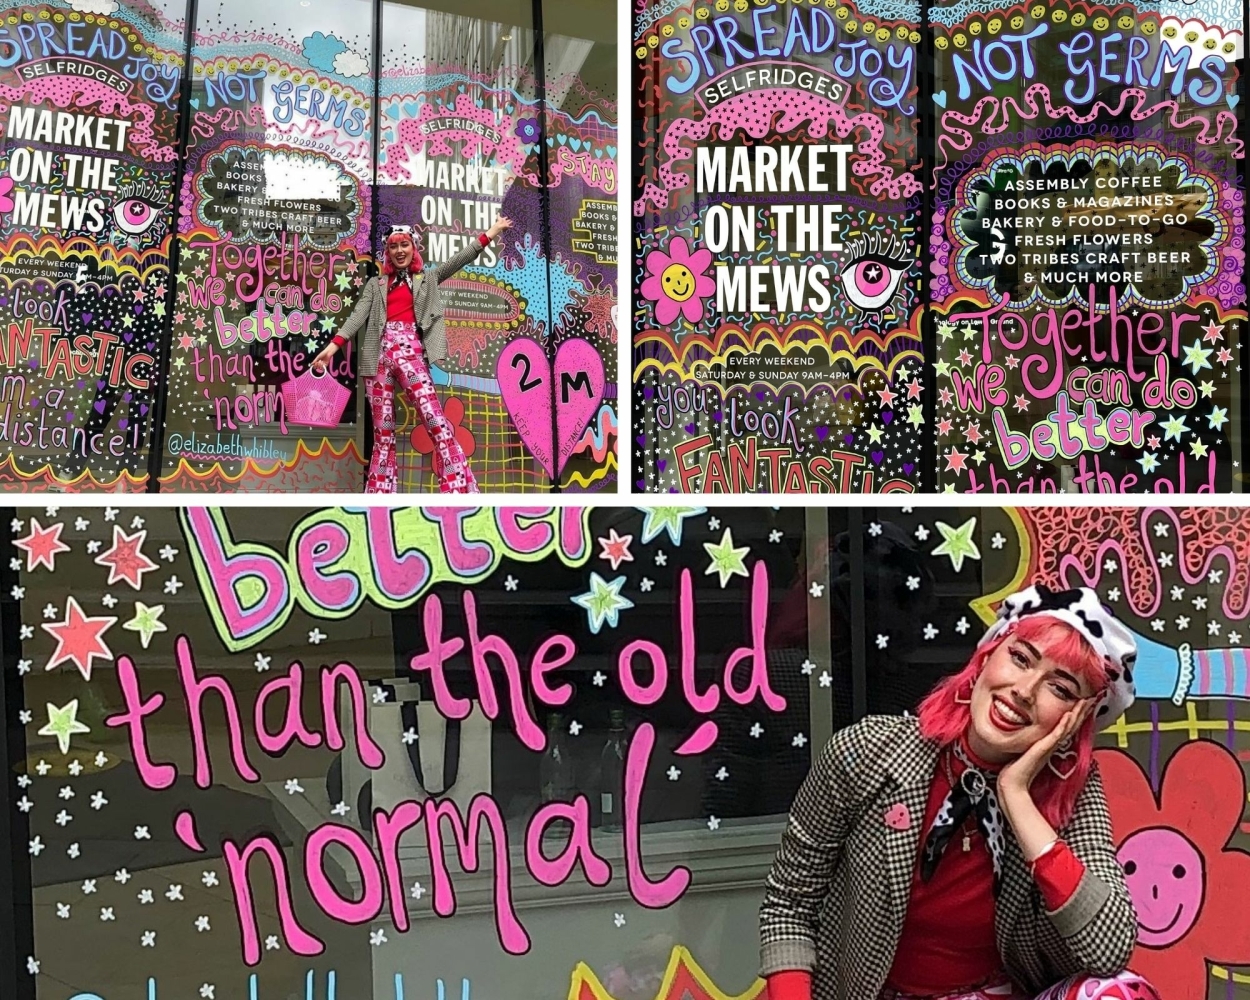 SPREAD JOY
SELFRIDGES
MARKET
ON THE
MEWS
EVERY WEEKEND
SATURDAY & SUNDAY 9AM–4PM
look
FANTASTIC
distance!
NOT GERMS
BOOKS
BAKERY &
FRESH FLOWERS
TWO TRIBES CRAFT BEER
& MUCH MORE
Together
we can do
better
than the old
'norm
@elizabethwhibley
SELFRIDGES
MARKET
ON THE
MEWS
EVERY WEEKEND
& SUNDAY 9AM–4PM
STAY
BOOKS &
FRESH
TWO TRIB
& MU
2 M
KEEP YOUR DISTANCE!
SPREAD JOY
SELFRIDGES
MARKET
ON THE
MEWS
EVERY WEEKEND
SATURDAY & SUNDAY 9AM–4PM
you look
FANTASTIC
NOT GERMS
ASSEMBLY COFFEE
BOOKS & MAGAZINES
BAKERY & FOOD-TO-GO
FRESH FLOWERS
TWO TRIBES CRAFT BEER
& MUCH MORE
Together
we can do
better
than the old
better
than the old
'normal'